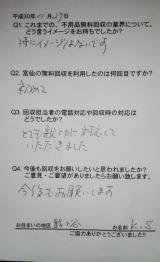 平成30年11月27日
Q1.これまでの、不用品無料回収の業界について、
どう言うイメージをお持ちでしたか？
特にイメージはないです
Q2.富仙の無料回収を利用したのは何回目ですか？
初めて
Q3.回収担当者の電話対応や回収時の対応は
どうでしたか？
とても親切に対応して
いただきました
Q4.今後も回収をお願いしたいと思われましたか？
ご意見・ご要望がありましたらお願い致します。
今後もお願いします
お住まいの地区
お名前 K.S
ご協力ありがとうございました!